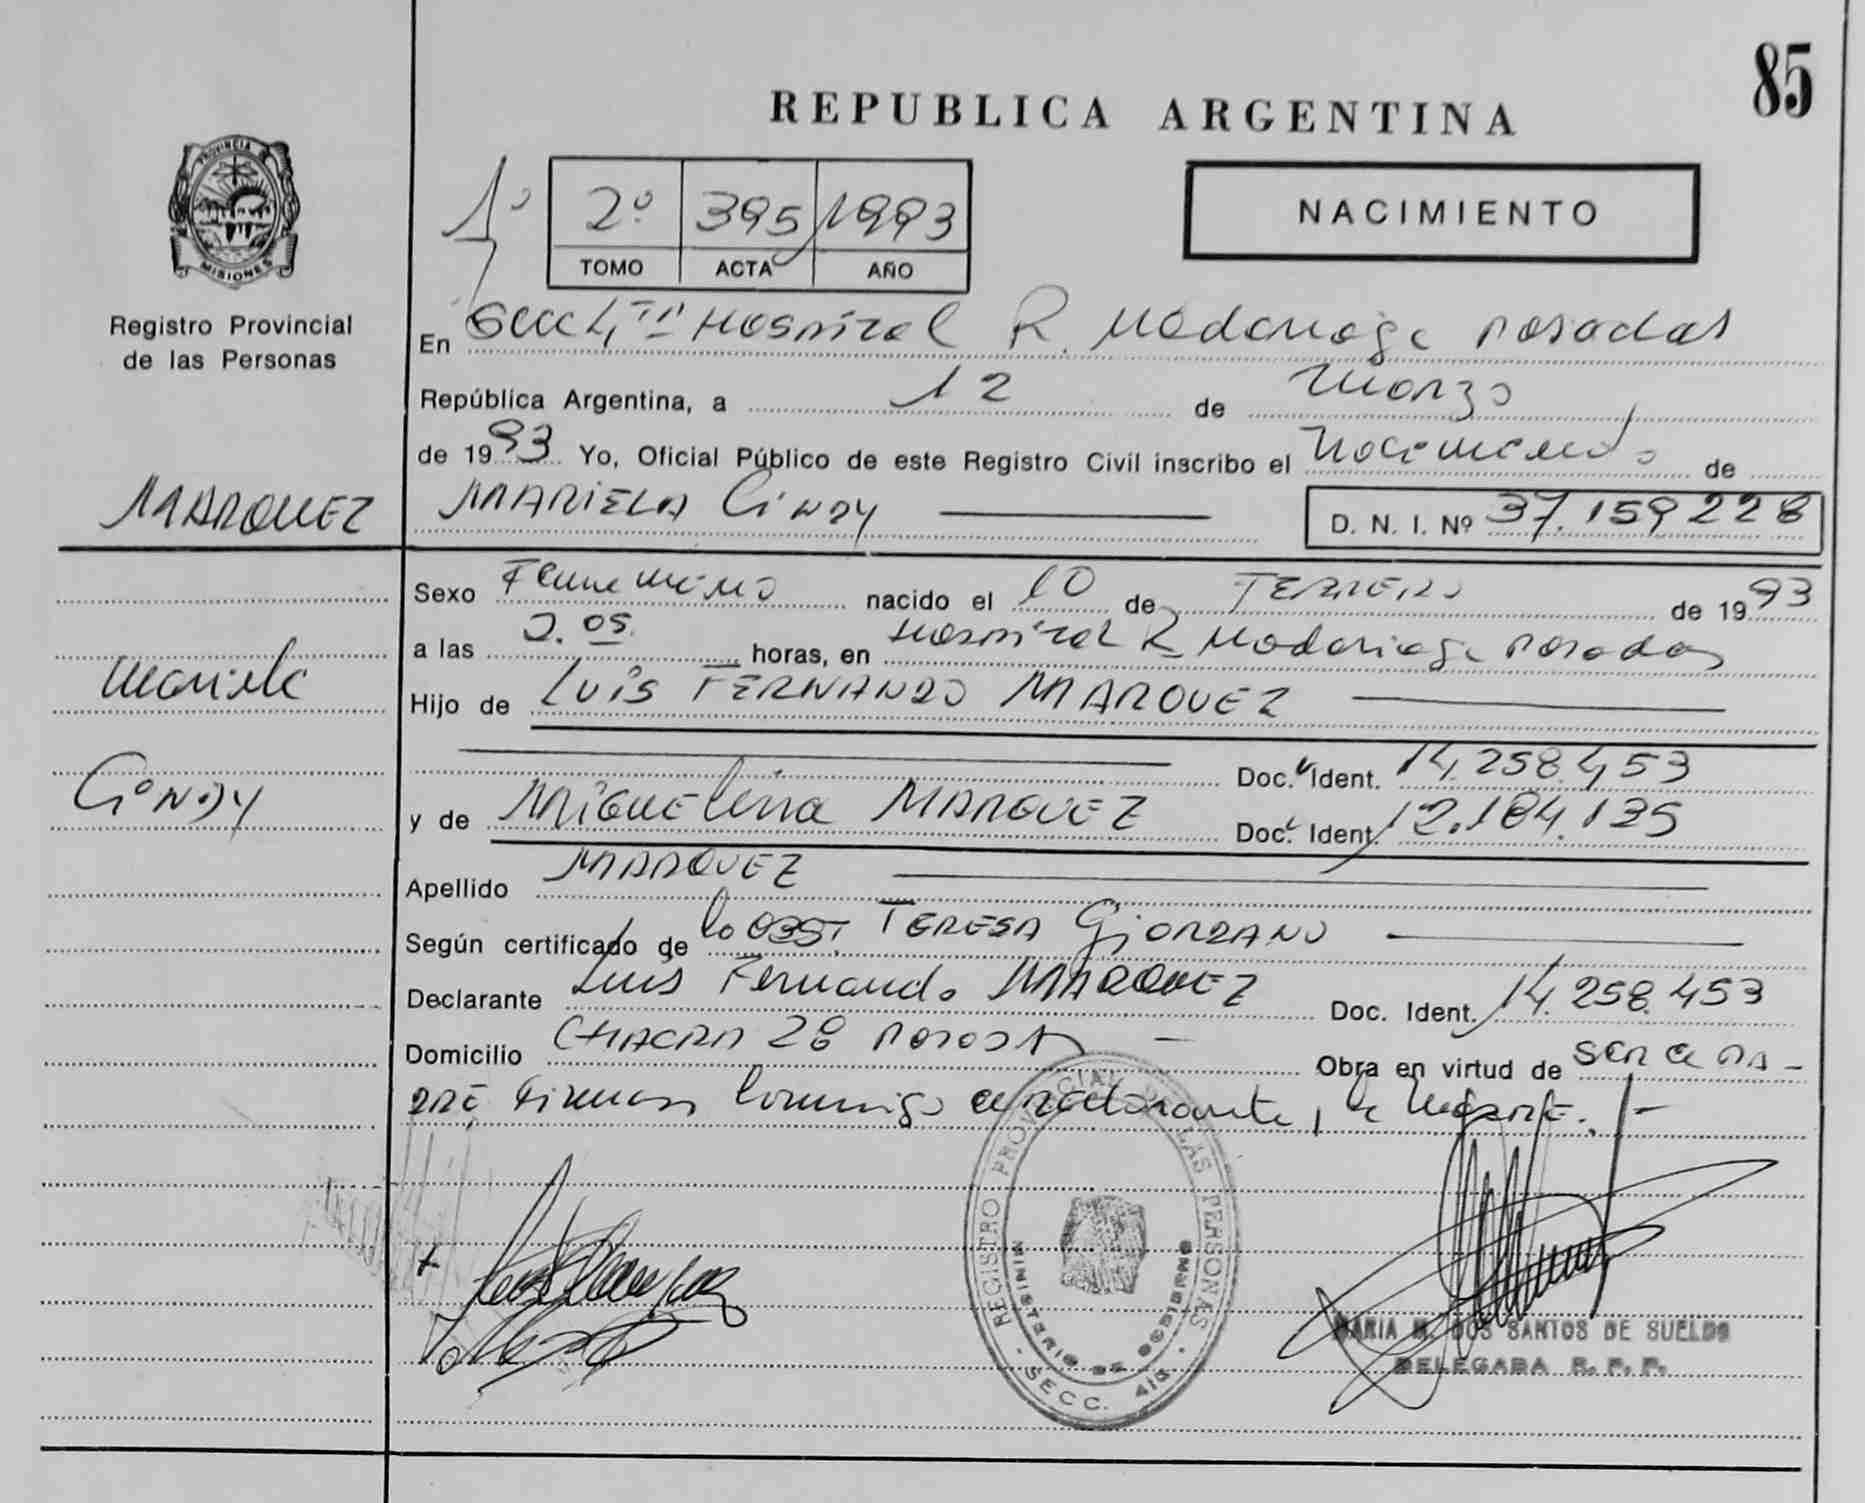 85
REPUBLICA ARGENTINA
PROVINCIA DE
MISIONES
Registro Provincial
de las Personas
1º 2º 395 1993
TOMO ACTA AÑO
NACIMIENTO
En Secc 4ta Hospital R. Madariaga Posadas
República Argentina, a 12 de Marzo
de 1993 Yo, Oficial Público de este Registro Civil inscribo el Nacimiento de
MARQUEZ MARIELA CiNDY D. N. I. Nº 37.159.228
Sexo Femenino nacido el 10 de FEBRERO de 1993
a las 2.05 horas, en Hospital R Madariaga Posadas
Mariela
Hijo de LUiS FERNANDO MARQUEZ
Doc. Ident. 14.258.453
CiNDY
y de MiGUElina MARQUEZ Doc. Ident. 12.184.135
Apellido MARQUEZ
Según certificado de la OBST. TERESA GiORDANO
Declarante Luis Fernando MARQUEZ Doc. Ident. 14.258.453
Domicilio CHACRA 28 POSADAS - Obra en virtud de SER EL PA-
DRE Firman conmigo el declarante, la Madre. -
REGISTRO PROVINCIAL DE LAS PERSONAS
MINISTERIO DE GOBIERNO
- SECC. 4ta. -
MARIA M. DOS SANTOS DE SUELDO
DELEGADA R. P. P.